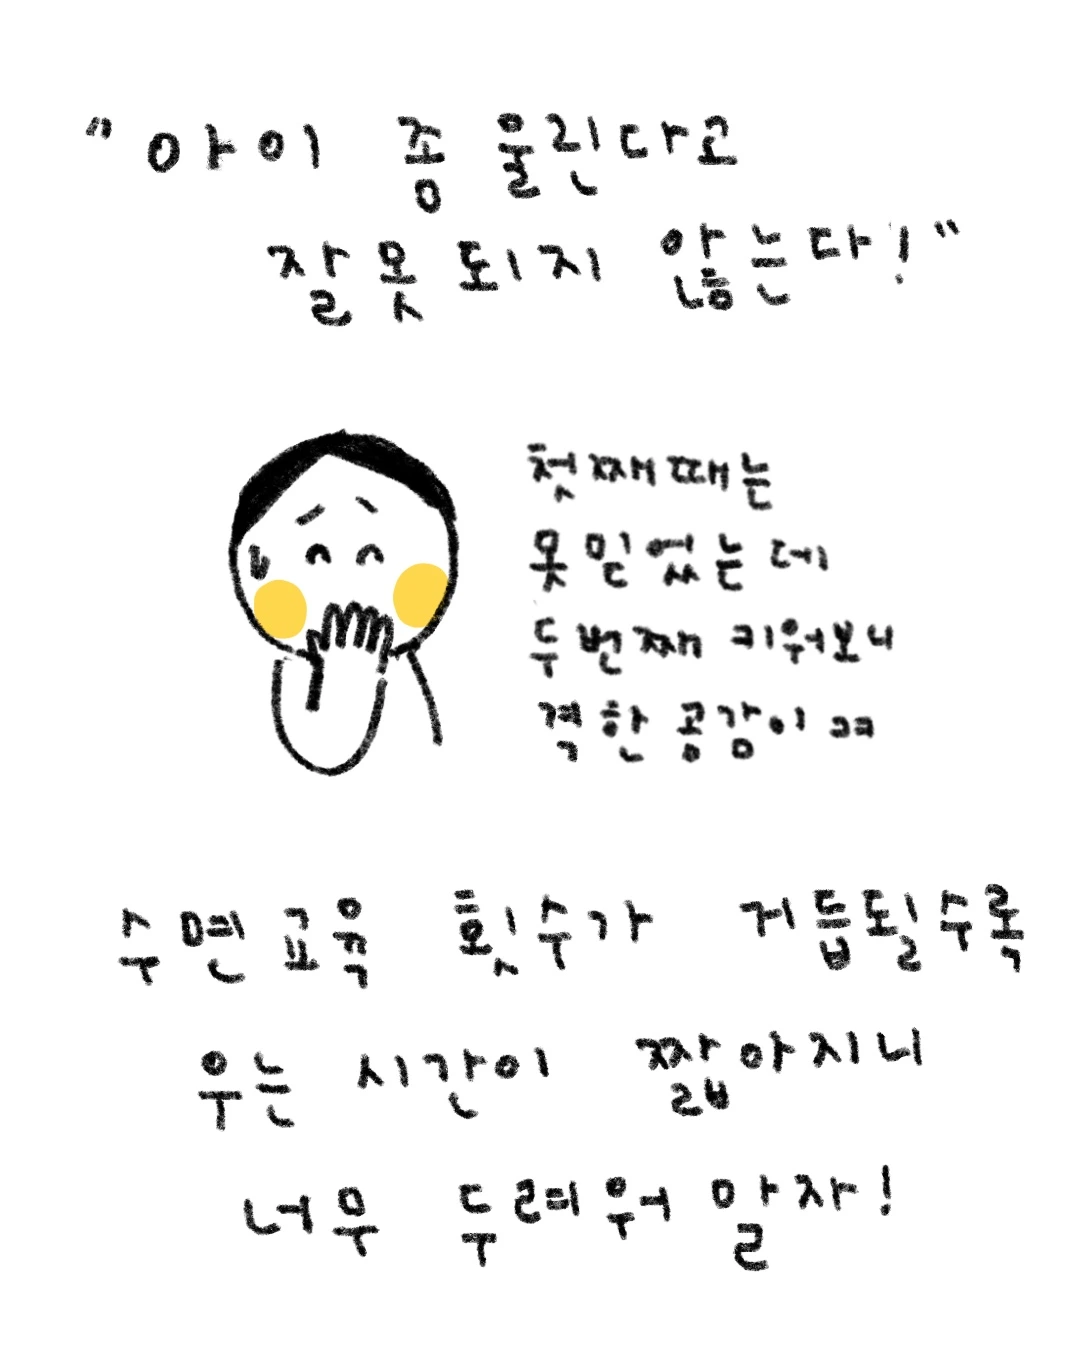 "아이 좀 울린다고
잘못되지 않는다!"
첫째때는
못믿었는데
두번째 키워보니
격한공감이ㅋㅋ
수면교육 횟수가 거듭될수록
우는 시간이 짧아지니
너무 두려워말자!